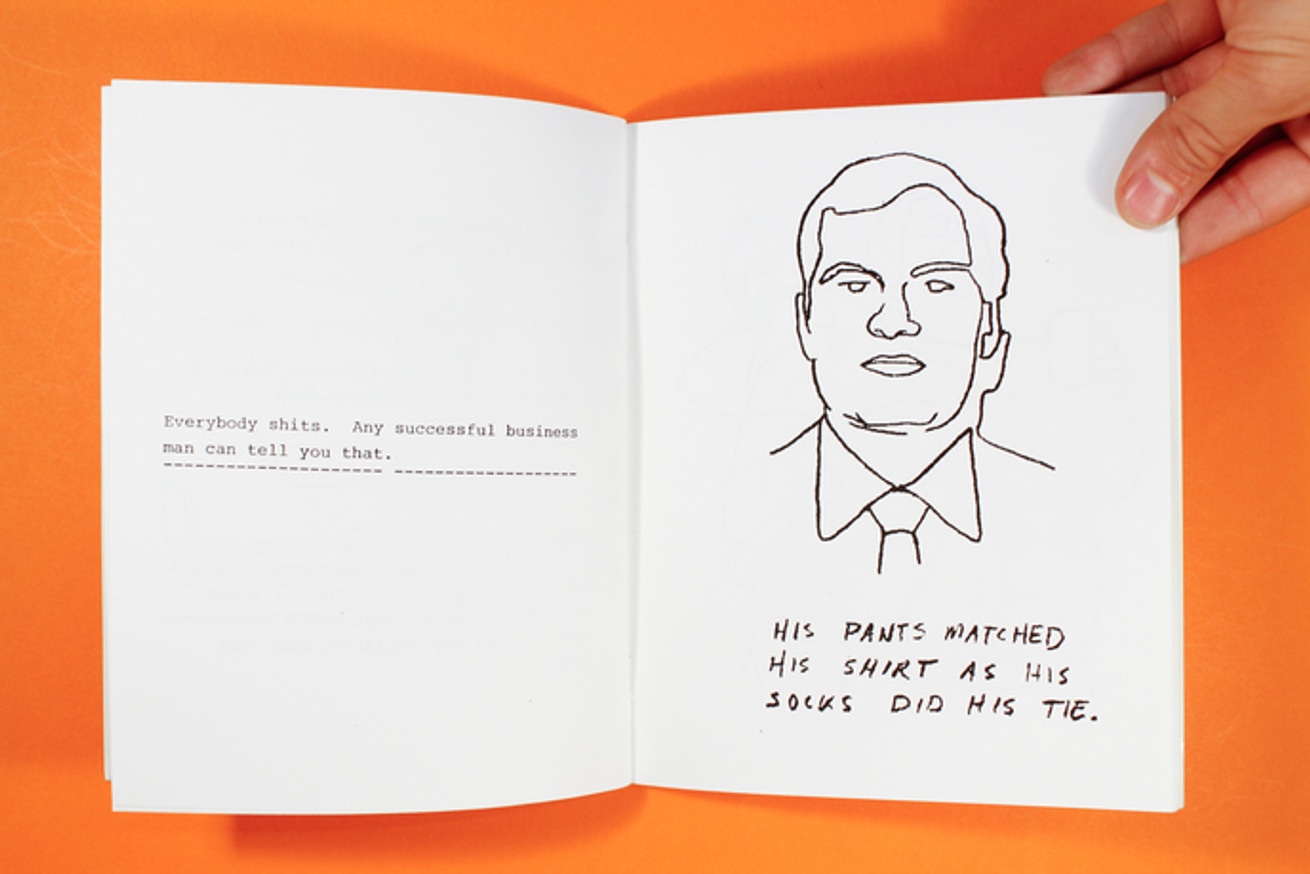 Everybody shits.  Any successful business
man can tell you that.
HIS PANTS MATCHED
HIS SHIRT AS HIS
SOCKS DID HIS TIE.